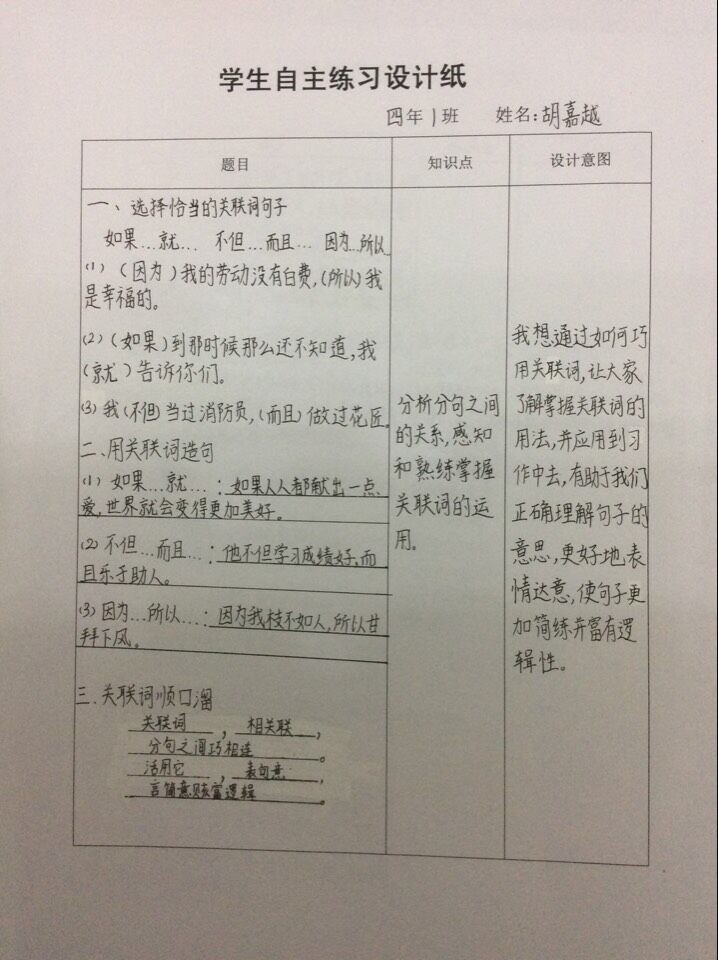 学生自主练习设计纸
四年1班 姓名:胡嘉越
题目 知识点 设计意图
一、选择恰当的关联词句子
如果…就… 不但…而且… 因为…所以
(1)(因为)我的劳动没有白费,(所以)我
是幸福的。
(2)(如果)到那时候那么还不知道,我
(就)告诉你们。
(3)我(不但)当过消防员,(而且)做过花匠。
二、用关联词造句
(1)如果…就…:如果人人都献出一点
爱,世界就会变得更加美好。
(2)不但…而且…:他不但学习成绩好,而
且乐于助人。
(3)因为…所以…:因为我枝不如人,所以甘
拜下风。
三、关联词顺口溜
关联词,相关联,
分句之间巧相连。
活用它,表句意,
言简意赅富逻辑。
分析分句之间
的关系,感知
和熟练掌握
关联词的运
用。
我想通过如何巧
用关联词,让大家
了解掌握关联词的
用法,并应用到习
作中去,有助于我们
正确理解句子的
意思,更好地表
情达意,使句子更
加简练并富有逻
辑性。